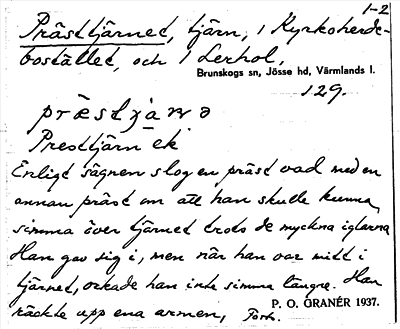 1-2
Prästtjärnet, tjärn, i Kyrkoherde-
bostället, och i Lerhol,
Brunskogs sn, Jösse hd, Värmlands l.
129.
Presttjärn ek
Enligt sägnen slog en präst vad med en
annan präst om att han skulle kunna
simma över tjärnet trots de myckna iglarna
Han gav sig i, men när han var mitt i
tjärnet, orkade han inte simma längre. Han
räckte upp ena armen, Forts.
P. O. GRANÉR 1937.